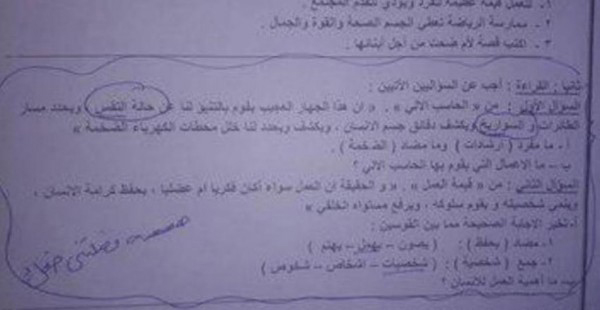 ١. للعمل قيمة عظيمة للفرد ويؤدي لتقدم المجتمع .
٢ - ممارسة الرياضة تعطي الجسم الصحة والقوة والجمال .
٣ - اكتب قصة لأم ضحت من أجل أبنائها .
ثانيا : القراءة : أجب عن السؤالين الآتيين :
السؤال الأول : من « الحاسب الآلي » . « ان هذا الجهاز العجيب يقوم بالتنبؤ لنا عن حالة الطقس ، ويحدد مسار
الطائرات و السوارية ويكشف دقائق جسم الانسان ، ويكشف ويحدد لنا خلل محطات الكهرباء الضخمة »
أ - ما مفرد ( ارشادات ) وما مضاد ( الضخمة ) .
ب – ما الاعمال التي يقوم بها الحاسب الآلي ؟
السؤال الثاني : من « قيمة العمل » . « و الحقيقة ان العمل سواء أكان فكريا ام عضليا ، يحفظ كرامة الانسان ،
وينمي شخصيته و يقوم سلوكه ، ويرفع مستواه الخلقي »
أ-تخير الاجابة الصحيحة مما بين القوسين :
١- مضاد ( يحفظ ) : ( يصون – يهمل – يهتم )
٢- جمع ( شخصية ) : ( شخصيات – اشخاص – شخوص )
ب- ما أهمية العمل للانسان ؟